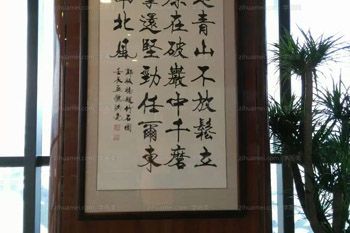 定青山不放鬆立
原在破巖中千磨
擊還堅勁任爾東
南北風
鄭板橋題竹石圖
zihuamei.com